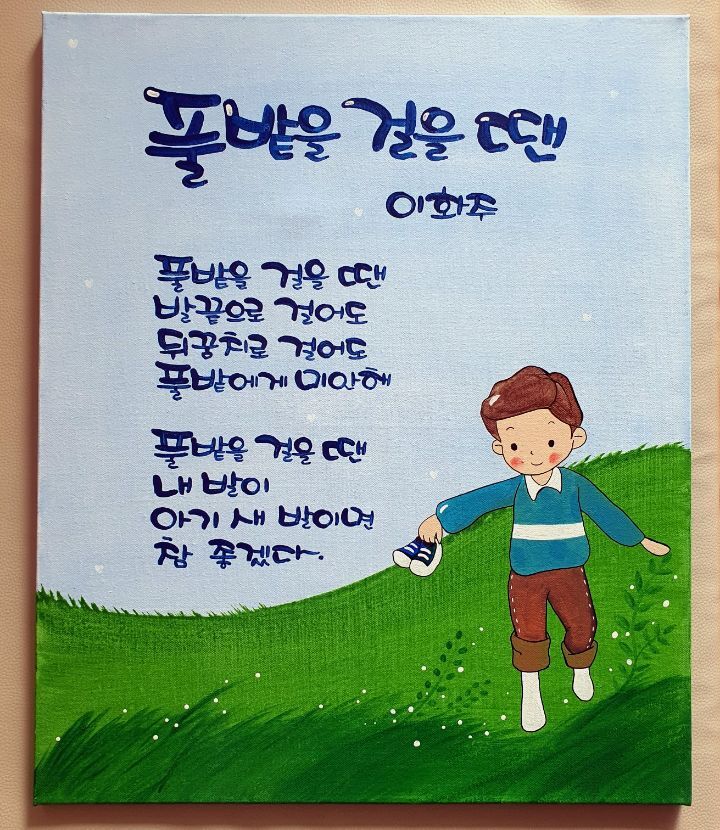 풀밭을 걸을 땐
이화주
풀밭을 걸을 땐
발끝으로 걸어도
뒤꿈치로 걸어도
풀밭에게 미안해
풀밭을 걸을 땐
내 발이
아기 새 발이면
참 좋겠다.